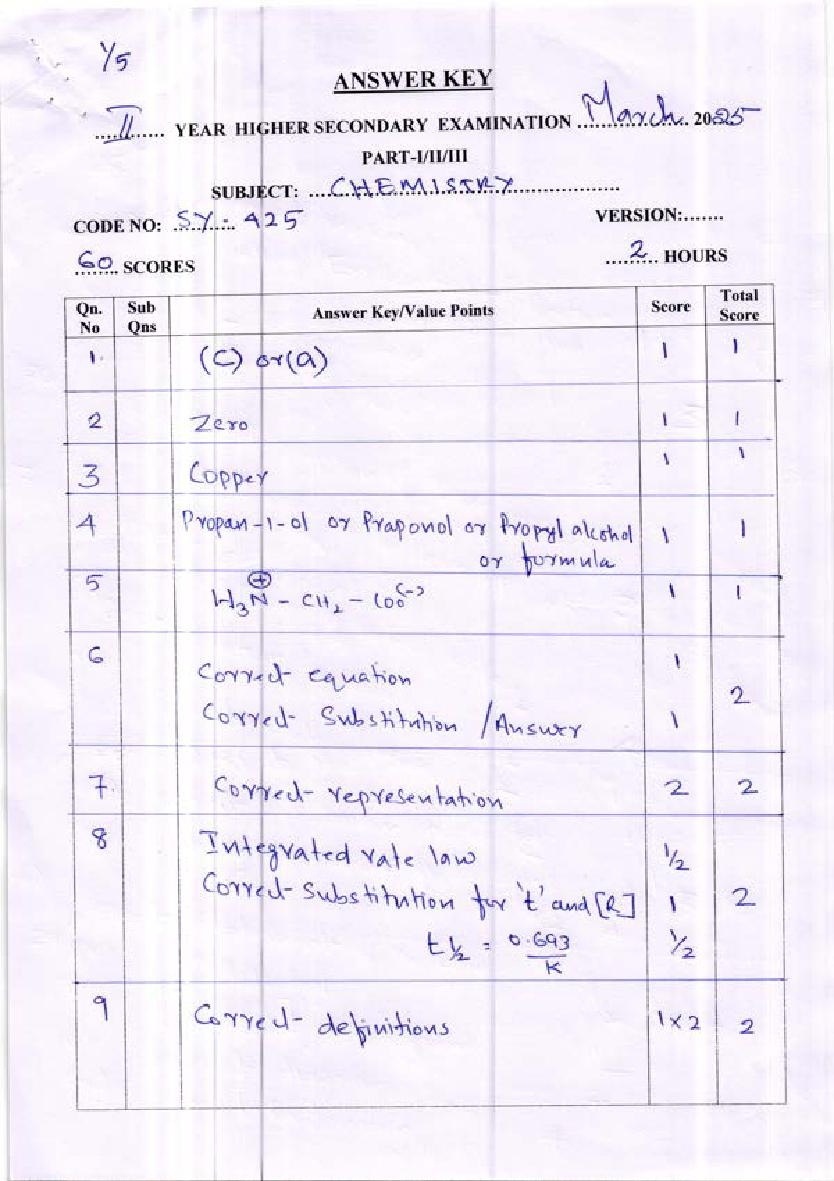 1/5
ANSWER KEY
II YEAR HIGHER SECONDARY EXAMINATION March 2025
PART-I/II/III
SUBJECT: CHEMISTRY
CODE NO: SY-425 VERSION:.......
60 SCORES 2 HOURS
Qn. No Sub Qns Answer Key/Value Points Score Total Score
1. (C) or (a) 1 1
2 Zero 1 1
3 Copper 1 1
4 Propan-1-ol or Praponol or Propyl alcohol 1 1
or formula
5 H₃N⊕ - CH₂ - COO(-) 1 1
6 Correct equation 1
2
Correct Substitution / Answer 1
7. Correct representation 2 2
8 Integrated rate law 1/2
Correct Substitution for 't' and [R] 1 2
t½ = 0.693/K 1/2
9 Correct definitions 1×2 2